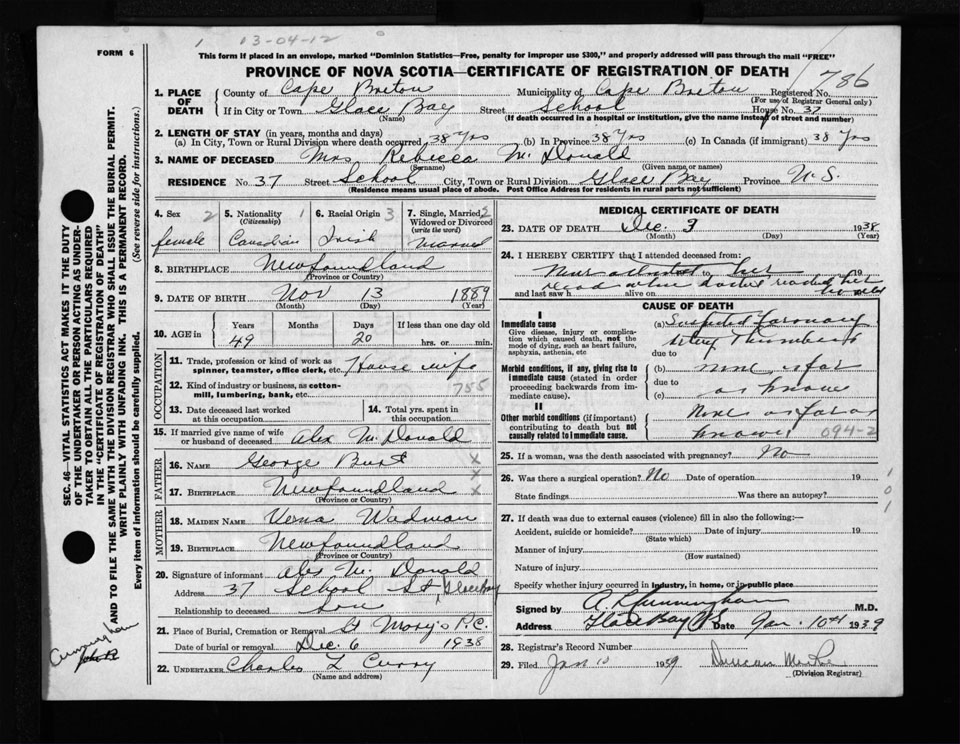 1 13-04-12
FORM 6
This form if placed in an envelope, marked "Dominion Statistics—Free, penalty for improper use $300," and properly addressed will pass through the mail "FREE"
PROVINCE OF NOVA SCOTIA—CERTIFICATE OF REGISTRATION OF DEATH
786
1. PLACE OF DEATH
County of Cape Breton Municipality of Cape Breton Registered No.
(For use of Registrar General only)
If in City or Town Glace Bay Street School House No. 37
(Name) (If death occurred in a hospital or institution, give the name instead of street and number)
2. LENGTH OF STAY (in years, months and days)
(a) In City, Town or Rural Division where death occurred 38 Yrs (b) In Province 38 Yrs (c) In Canada (if immigrant) 38 Yrs
3. NAME OF DECEASED Mrs Rebecca McDonald
(Surname) (Given name or names)
RESIDENCE No. 37 Street School City, Town or Rural Division Glace Bay Province N.S.
(Residence means usual place of abode. Post Office Address for residents in rural parts not sufficient)
4. Sex 2
female
5. Nationality 1
(Citizenship)
Canadian
6. Racial Origin 3
Irish
7. Single, Married, 2
Widowed or Divorced
(write the word)
Married
8. BIRTHPLACE Newfoundland
(Province or Country)
9. DATE OF BIRTH Nov 13 1889
(Month) (Day) (Year)
10. AGE in Years Months Days If less than one day old
49 20 hrs. or min.
OCCUPATION
11. Trade, profession or kind of work as
spinner, teamster, office clerk, etc. House wife
12. Kind of industry or business, as cotton-
mill, lumbering, bank, etc. 755
13. Date deceased last worked
at this occupation
14. Total yrs. spent in
this occupation
15. If married give name of wife
or husband of deceased Alex McDonald
FATHER
16. NAME George Burt x
17. BIRTHPLACE Newfoundland x x
(Province or Country)
MOTHER
18. MAIDEN NAME Verna Wadman
19. BIRTHPLACE Newfoundland
(Province or Country)
20. Signature of informant Alex McDonald
Address 37 School St Glace Bay
Relationship to deceased Son
21. Place of Burial, Cremation or Removal St Mary's P.C.
Date of burial or removal Dec. 6 1938
22. UNDERTAKER Charles L Curry
MEDICAL CERTIFICATE OF DEATH
23. DATE OF DEATH Dec. 3 1938
(Month) (Day) (Year)
24. I HEREBY CERTIFY that I attended deceased from:
to her 19
and last saw h alive on
dead when doctor reached her home
CAUSE OF DEATH
I
Immediate cause
Give disease, injury or complication which caused death, not the mode of dying, such as heart failure, asphyxia, asthenia, etc
(a) Suspected Coronary
Artery Thrombosis
due to
Morbid conditions, if any, giving rise to immediate cause (stated in order proceeding backwards from immediate cause).
(b) none as far
due to
(c) as know
II
Other morbid conditions (if important) contributing to death but not causally related to immediate cause.
None as far as
known 094-2
25. If a woman, was the death associated with pregnancy? No
26. Was there a surgical operation? No Date of operation 19
State findings Was there an autopsy?
1 0 1
27. If death was due to external causes (violence) fill in also the following:—
Accident, suicide or homicide? Date of injury 19
(State which)
Manner of injury
(How sustained)
Nature of injury
Specify whether injury occurred in industry, in home, or in public place
Signed by Cunningham M.D.
Address Glace Bay CB Date Jan. 10th 1939
28. Registrar's Record Number
29. Filed Jan 10 1939 Duncan
(Division Registrar)
SEC. 46—VITAL STATISTICS ACT MAKES IT THE DUTY
OF THE UNDERTAKER OR PERSON ACTING AS UNDER-
TAKER TO OBTAIN ALL THE PARTICULARS REQUIRED
IN THE "CERTIFICATE OF REGISTRATION OF DEATH"
AND TO FILE THE SAME WITH THE DIVISION REGISTRAR WHO SHALL ISSUE THE BURIAL PERMIT.
WRITE PLAINLY WITH UNFADING INK. THIS IS A PERMANENT RECORD.
Every item of information should be carefully supplied. (See reverse side for instructions.)
Cunningham